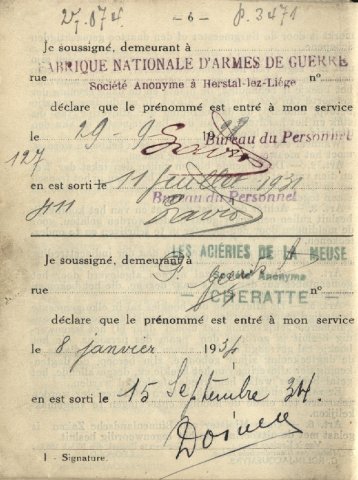 27.074 — 6 — p. 3471
Je soussigné, demeurant à
FABRIQUE NATIONALE D'ARMES DE GUERRE
rue Société Anonyme à Herstal-lez-Liége n°
déclare que le prénommé est entré à mon service
le 29-9 19
Bureau du Personnel
127
en est sorti le 11 juillet 1931
Bureau du Personnel
411
Je soussigné, demeurant à LES ACIÉRIES DE LA MEUSE
Société Anonyme
rue — CHERATTE — n°
déclare que le prénommé est entré à mon service
le 8 janvier 1934
en est sorti le 15 Septembre 34.
1 - Signature.